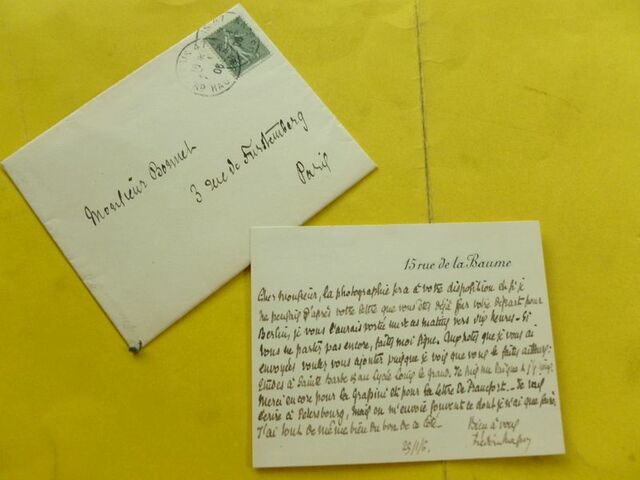 Monsieur Bonnet
3 rue de Furstemberg
Paris
06
15 rue de la Baume
Cher Monsieur, la photographie sera à votre disposition et si je
ne pensais d'après votre lettre que vous êtes déjà sur votre départ pour
Berlin, je vous l'aurais portée ce matin vers heures. Si
vous ne partez pas encore, faites moi signe. Aux notes que je vous ai
envoyées voulez vous ajouter puisque je vois que vous le faites ailleurs:
Etudes à Sainte Barbe et au Lycée Louis le Grand. Je
Merci encore pour la et pour la lettre de Francfort. Je vais
écrire à Petersbourg, mais on m'envoie souvent ce dont je n'ai que faire.
J'ai tout de même bien du bon de ce côté.
Bien à vous
23/1/6.